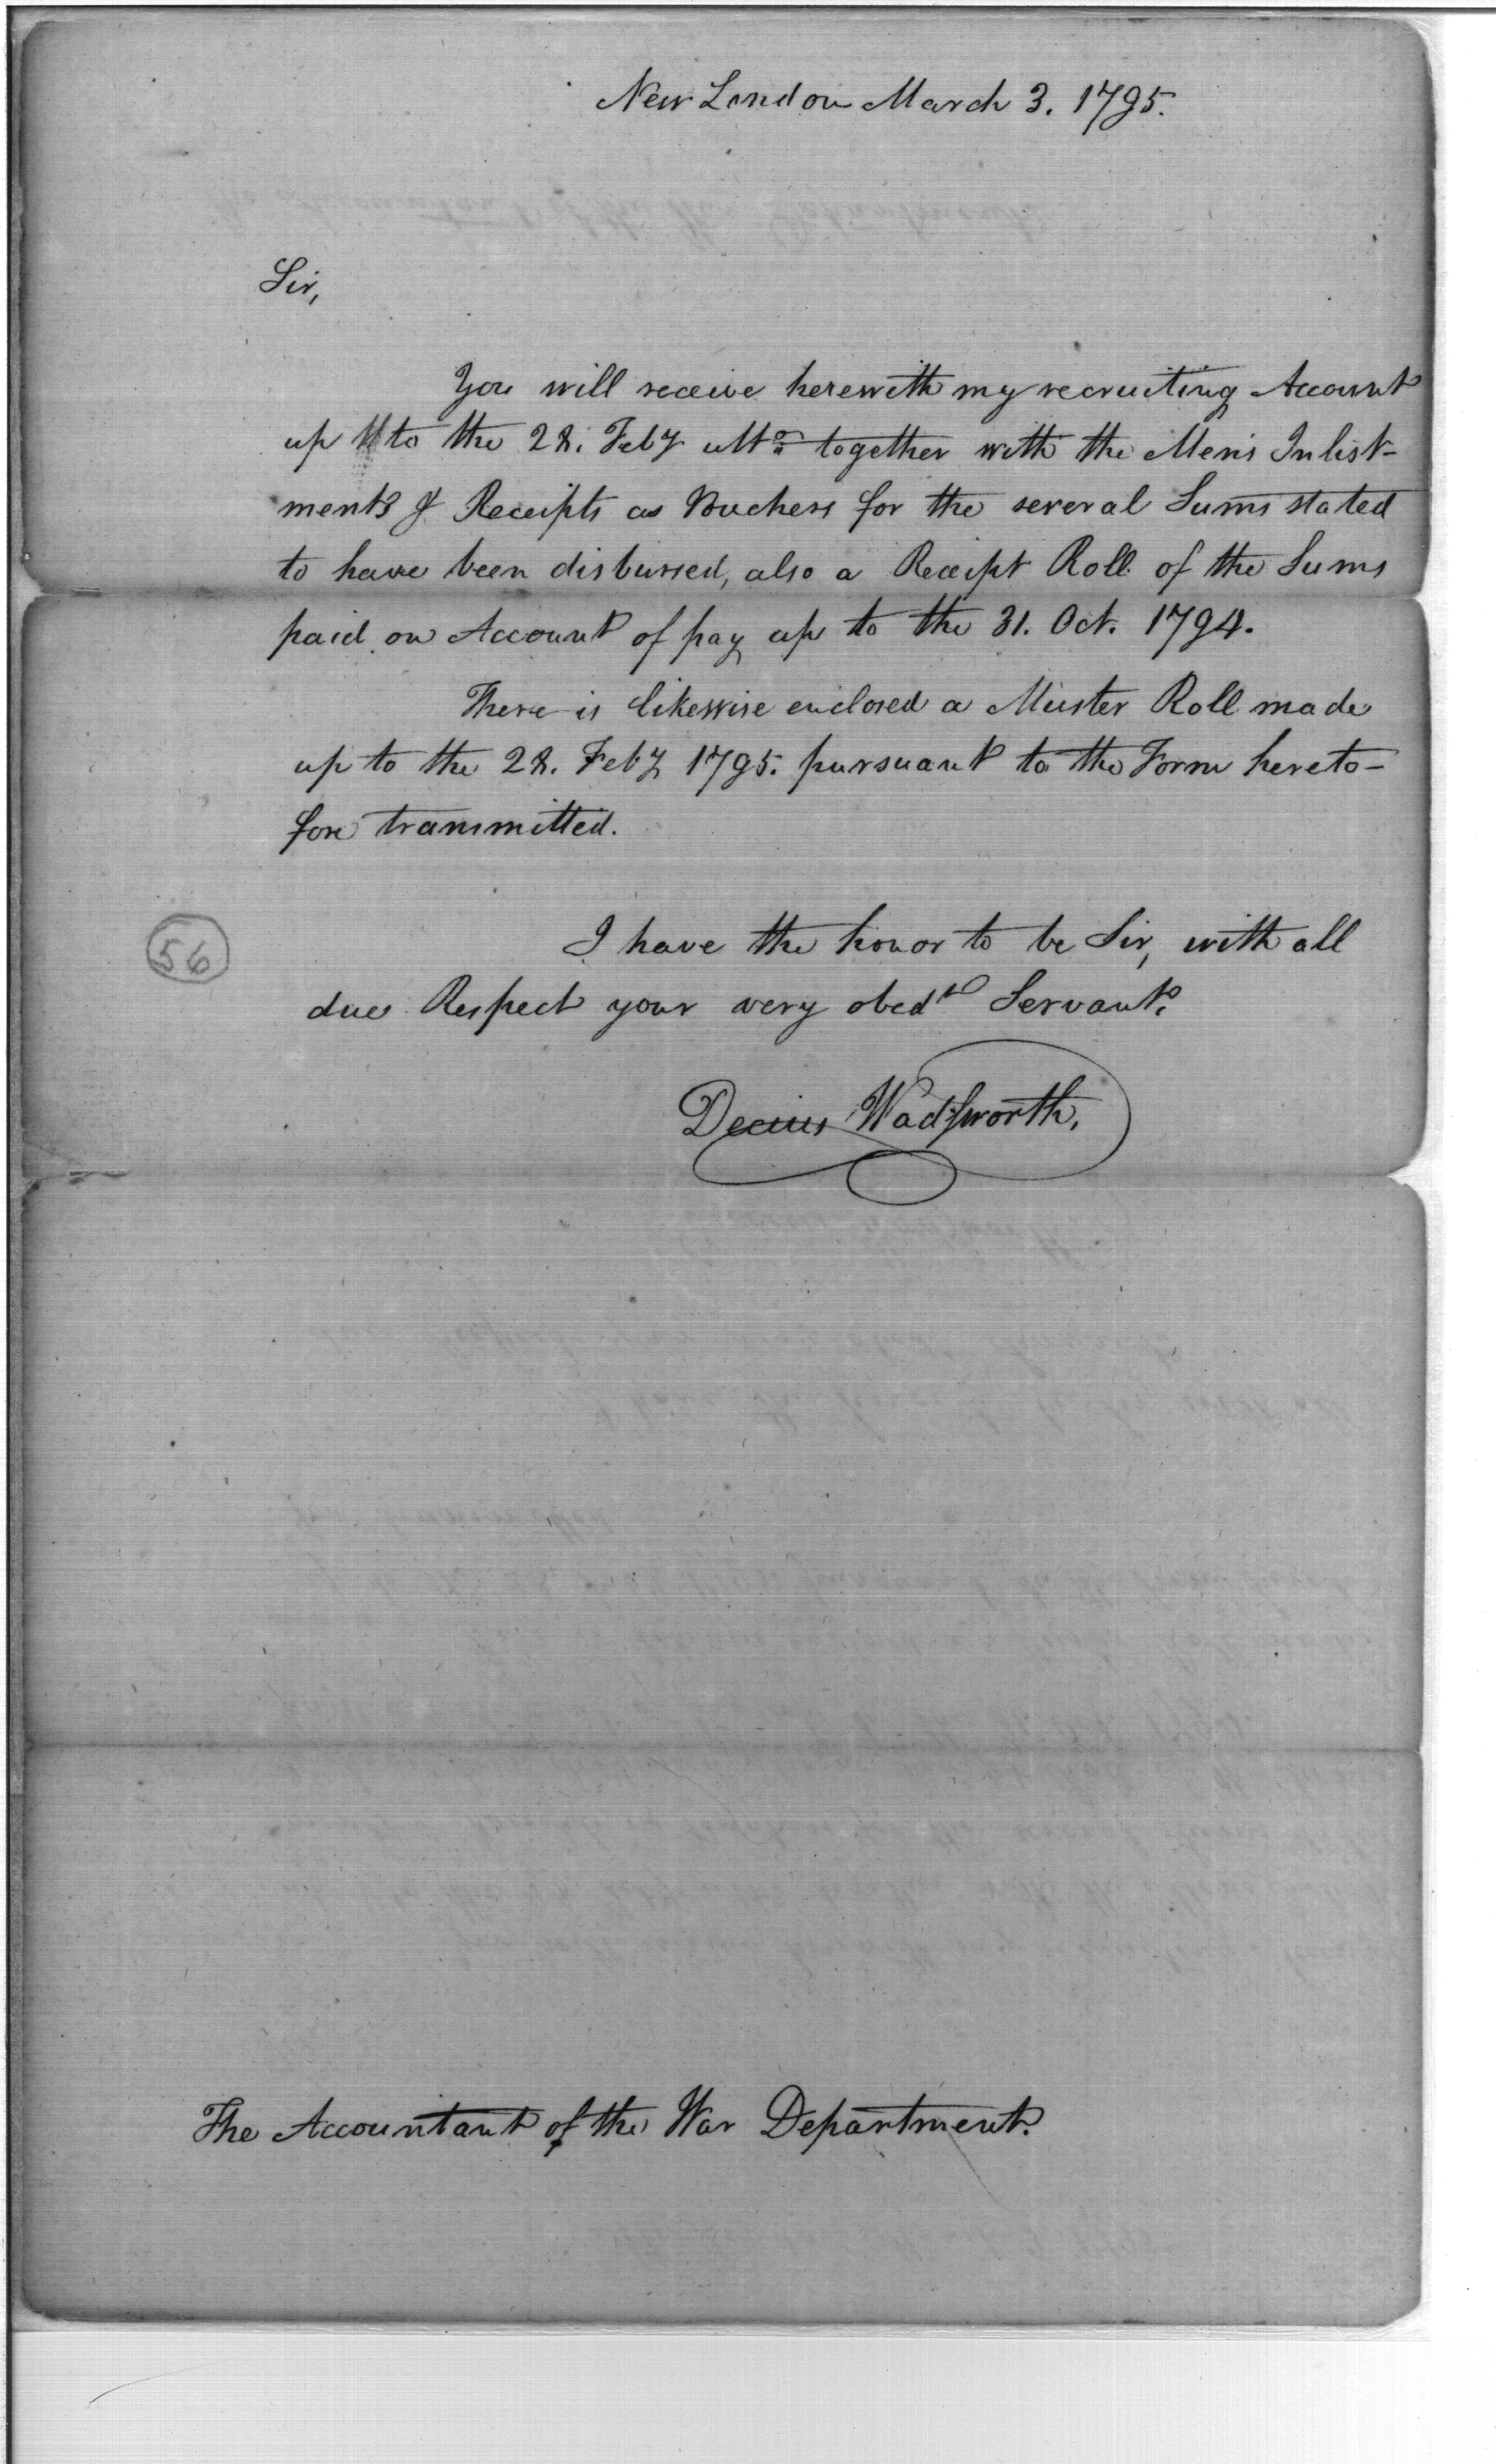 New London March 3. 1795.
Sir,
You will receive herewith my recruiting Account
up to the 28. Feby ulto. together with the Mens Inlist-
ments & Receipts as Vouchers for the several Sums stated
to have been disbursed, also a Receipt Roll of the Sums
paid on Account of pay up to the 31. Oct. 1794.
There is likewise enclosed a Muster Roll made
up to the 28. Feby 1795. pursuant to the Form hereto-
fore transmitted.
56
I have the honor to be Sir, with all
due Respect your very obedt Servant.
Decius Wadsworth.
The Accountant of the War Department.